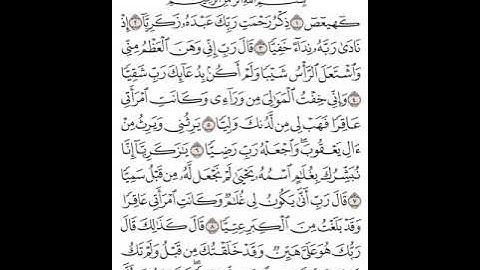 بِسْمِ ٱللَّهِ ٱلرَّحْمَٰنِ ٱلرَّحِيمِ
كٓهيعٓصٓ ١ ذِكْرُ رَحْمَتِ رَبِّكَ عَبْدَهُۥ زَكَرِيَّآ ٢ إِذْ
نَادَىٰ رَبَّهُۥ نِدَآءً خَفِيًّا ٣ قَالَ رَبِّ إِنِّى وَهَنَ ٱلْعَظْمُ مِنِّى
وَٱشْتَعَلَ ٱلرَّأْسُ شَيْبًا وَلَمْ أَكُنۢ بِدُعَآئِكَ رَبِّ شَقِيًّا
٤ وَإِنِّى خِفْتُ ٱلْمَوَٰلِىَ مِن وَرَآءِى وَكَانَتِ ٱمْرَأَتِى
عَاقِرًا فَهَبْ لِى مِن لَّدُنكَ وَلِيًّا ٥ يَرِثُنِى وَيَرِثُ مِنْ
ءَالِ يَعْقُوبَ ۖ وَٱجْعَلْهُ رَبِّ رَضِيًّا ٦ يَٰزَكَرِيَّآ إِنَّا
نُبَشِّرُكَ بِغُلَٰمٍ ٱسْمُهُۥ يَحْيَىٰ لَمْ نَجْعَل لَّهُۥ مِن قَبْلُ سَمِيًّا
٧ قَالَ رَبِّ أَنَّىٰ يَكُونُ لِى غُلَٰمٌ وَكَانَتِ ٱمْرَأَتِى عَاقِرًا
وَقَدْ بَلَغْتُ مِنَ ٱلْكِبَرِ عِتِيًّا ٨ قَالَ كَذَٰلِكَ قَالَ
رَبُّكَ هُوَ عَلَىَّ هَيِّنٌ وَقَدْ خَلَقْتُكَ مِن قَبْلُ وَلَمْ تَكُ